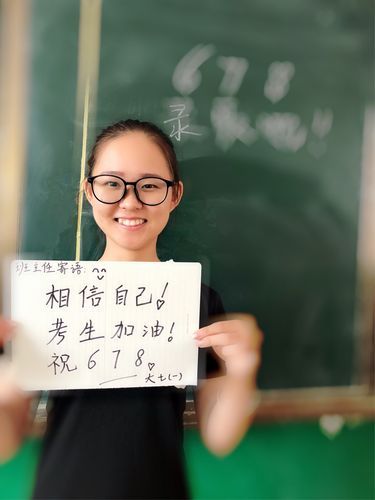 678
录
班主任寄语:
相信自己!
考生加油!
祝678
大七(一)